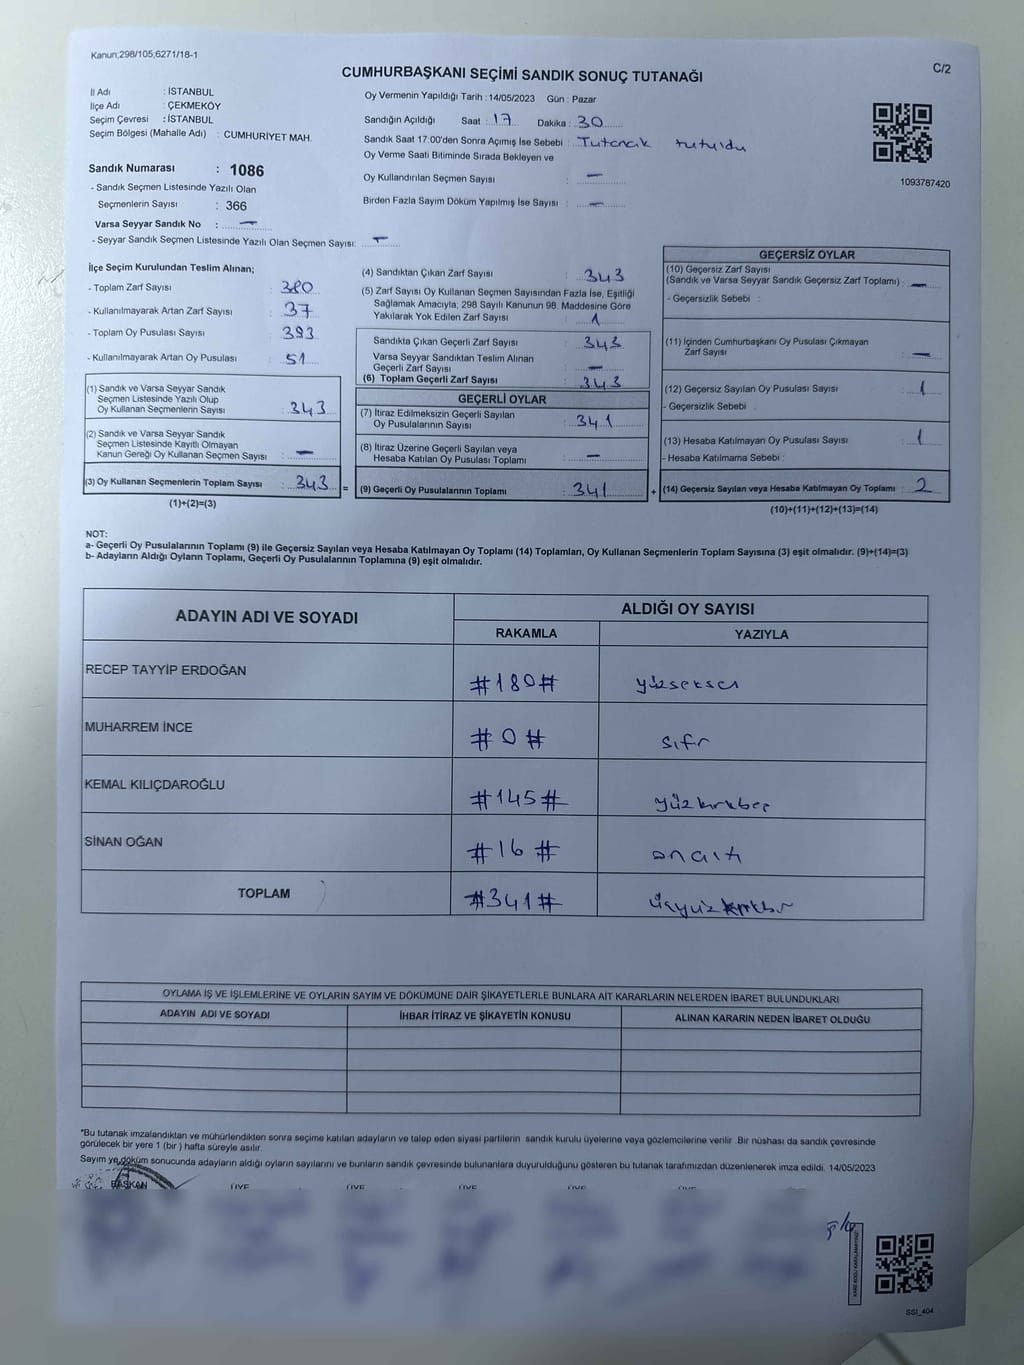 Kanun;298/105;6271/18-1
C/2
CUMHURBAŞKANI SEÇİMİ SANDIK SONUÇ TUTANAĞI
İl Adı : İSTANBUL
İlçe Adı : ÇEKMEKÖY
Seçim Çevresi : İSTANBUL
Seçim Bölgesi (Mahalle Adı) : CUMHURİYET MAH.
Sandık Numarası : 1086
- Sandık Seçmen Listesinde Yazılı Olan
Seçmenlerin Sayısı : 366
Varsa Seyyar Sandık No : —
- Seyyar Sandık Seçmen Listesinde Yazılı Olan Seçmen Sayısı: —
Oy Vermenin Yapıldığı Tarih : 14/05/2023 Gün : Pazar
Sandığın Açıldığı Saat : 17 Dakika : 30
Sandık Saat 17:00'den Sonra Açımış İse Sebebi : Tutanak tutuldu
Oy Verme Saati Bitiminde Sırada Bekleyen ve
Oy Kullandırılan Seçmen Sayısı : —
Birden Fazla Sayım Döküm Yapılmış İse Sayısı : —
1093787420
İlçe Seçim Kurulundan Teslim Alınan;
- Toplam Zarf Sayısı : 380
- Kullanılmayarak Artan Zarf Sayısı : 37
- Toplam Oy Pusulası Sayısı : 393
- Kullanılmayarak Artan Oy Pusulası : 51
(1) Sandık ve Varsa Seyyar Sandık
Seçmen Listesinde Yazılı Olup
Oy Kullanan Seçmenlerin Sayısı : 343
(2) Sandık ve Varsa Seyyar Sandık
Seçmen Listesinde Kayıtlı Olmayan
Kanun Gereği Oy Kullanan Seçmen Sayısı : —
(3) Oy Kullanan Seçmenlerin Toplam Sayısı : 343 =
(1)+(2)=(3)
(4) Sandıktan Çıkan Zarf Sayısı : 343
(5) Zarf Sayısı Oy Kullanan Seçmen Sayısından Fazla İse, Eşitliği
Sağlamak Amacıyla; 298 Sayılı Kanunun 98. Maddesine Göre
Yakılarak Yok Edilen Zarf Sayısı : 1
Sandıkta Çıkan Geçerli Zarf Sayısı : 343
Varsa Seyyar Sandıktan Teslim Alınan
Geçerli Zarf Sayısı : —
(6) Toplam Geçerli Zarf Sayısı : 343
GEÇERLİ OYLAR
(7) İtiraz Edilmeksizin Geçerli Sayılan
Oy Pusulalarının Sayısı : 341
(8) İtiraz Üzerine Geçerli Sayılan veya
Hesaba Katılan Oy Pusulası Toplamı : —
(9) Geçerli Oy Pusulalarının Toplamı : 341 +
GEÇERSİZ OYLAR
(10) Geçersiz Zarf Sayısı
(Sandık ve Varsa Seyyar Sandık Geçersiz Zarf Toplamı) : —
- Geçersizlik Sebebi :
(11) İçinden Cumhurbaşkanı Oy Pusulası Çıkmayan
Zarf Sayısı : —
(12) Geçersiz Sayılan Oy Pusulası Sayısı : 1
- Geçersizlik Sebebi :
(13) Hesaba Katılmayan Oy Pusulası Sayısı : 1
- Hesaba Katılmama Sebebi :
(14) Geçersiz Sayılan veya Hesaba Katılmayan Oy Toplamı : 2
(10)+(11)+(12)+(13)=(14)
NOT:
a- Geçerli Oy Pusulalarının Toplamı (9) ile Geçersiz Sayılan veya Hesaba Katılmayan Oy Toplamı (14) Toplamları, Oy Kullanan Seçmenlerin Toplam Sayısına (3) eşit olmalıdır. (9)+(14)=(3)
b- Adayların Aldığı Oyların Toplamı, Geçerli Oy Pusulalarının Toplamına (9) eşit olmalıdır.
ADAYIN ADI VE SOYADI ALDIĞI OY SAYISI
RAKAMLA YAZIYLA
RECEP TAYYİP ERDOĞAN #180# yüzseksen
MUHARREM İNCE #0# sıfır
KEMAL KILIÇDAROĞLU #145# yüzkırkbeş
SİNAN OĞAN #16# onaltı
TOPLAM #341# üçyüzkırkbir
OYLAMA İŞ VE İŞLEMLERİNE VE OYLARIN SAYIM VE DÖKÜMÜNE DAİR ŞİKAYETLERLE BUNLARA AİT KARARLARIN NELERDEN İBARET BULUNDUKLARI
ADAYIN ADI VE SOYADI İHBAR İTİRAZ VE ŞİKAYETİN KONUSU ALINAN KARARIN NEDEN İBARET OLDUĞU
*Bu tutanak imzalandıktan ve mühürlendikten sonra seçime katılan adayların ve talep eden siyasi partilerin sandık kurulu üyelerine veya gözlemcilerine verilir .Bir nüshası da sandık çevresinde
görülecek bir yere 1 (bir ) hafta süreyle asılır.
Sayım ve döküm sonucunda adayların aldığı oyların sayılarını ve bunların sandık çevresinde bulunanlara duyurulduğunu gösteren bu tutanak tarafımızdan düzenlenerek imza edildi. 14/05/2023
BAŞKAN ÜYE ÜYE ÜYE ÜYE ÜYE
SSİ_404